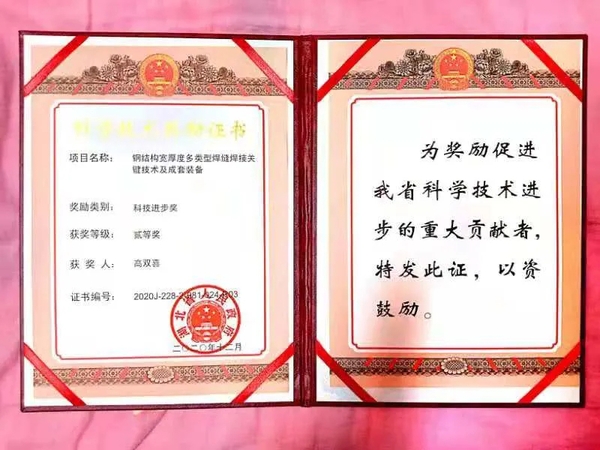 科学技术奖励证书
项目名称： 钢结构宽厚度多类型焊缝焊接关
键技术及成套装备
奖励类别： 科技进步奖
获奖等级： 贰等奖
获奖人： 高双喜
证书编号：
湖北省人民政府
二〇二〇年十二月
为奖励促进
我省科学技术进
步的重大贡献者，
特发此证，以资
鼓励。